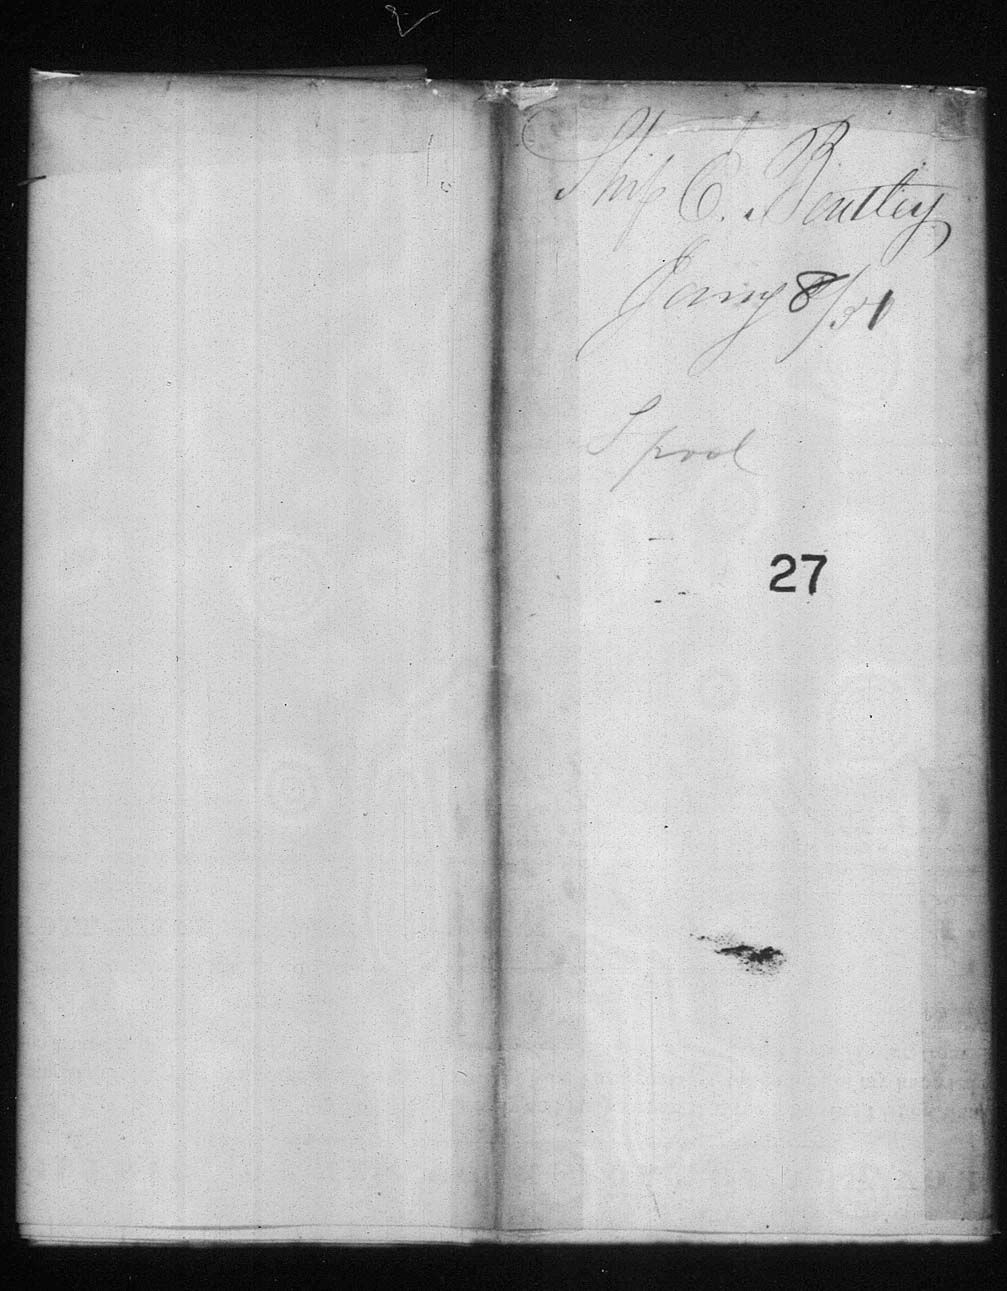 Ship E. Bentley
Jany 8/51
Lpool
27